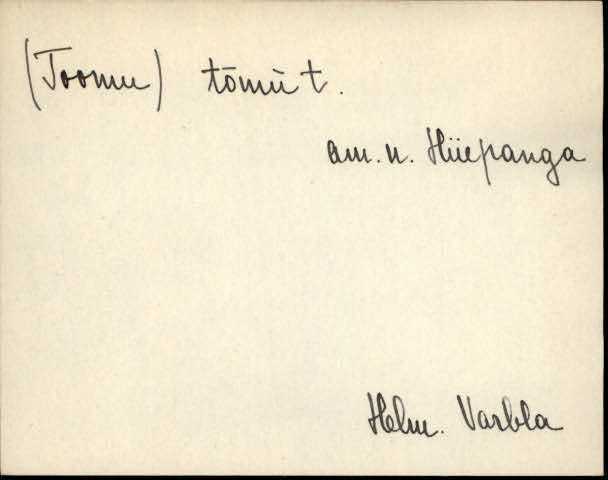 (Toomu) tōmù t.
am. n. Hüepanga
Helm. Varbla